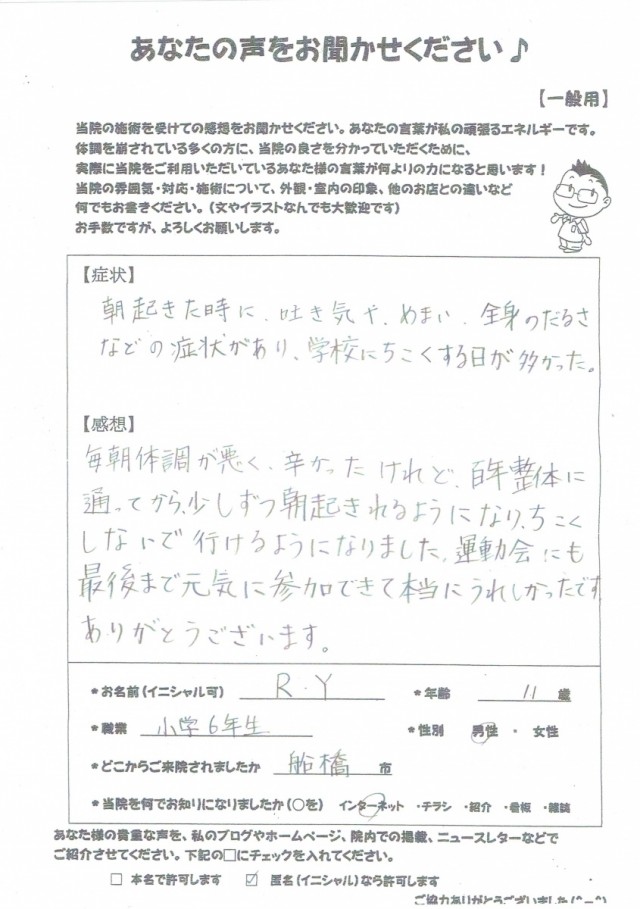 あなたの声をお聞かせください♪
【一般用】
当院の施術を受けての感想をお聞かせください。あなたの言葉が私の頑張るエネルギーです。
体調を崩されている多くの方に、当院の良さを分かっていただくために、
実際に当院をご利用いただいているあなた様の言葉が何よりの力になると思います！
当院の雰囲気・対応・施術について、外観・室内の印象、他のお店との違いなど
何でもお書きください。（文やイラストなんでも大歓迎です）
お手数ですが、よろしくお願いします。
【症状】
朝起きた時に、吐き気や、めまい、全身のだるさ
などの症状があり、学校にちこくする日が多かった。
【感想】
毎朝体調が悪く、辛かったけれど、百年整体に
通ってから、少しずつ朝起きれるようになり、ちこく
しないで行けるようになりました。運動会にも
最後まで元気に参加できて本当にうれしかったです
ありがとうございます。
*お名前（イニシャル可） R.Y *年齢 11 歳
*職業 小学6年生 *性別 男性 ・ 女性
*どこからご来院されましたか 船橋 市
*当院を何でお知りになりましたか（○を） インターネット ・チラシ ・紹介 ・看板 ・雑誌
あなた様の貴重な声を、私のブログやホームページ、院内での掲載、ニュースレターなどで
ご紹介させてください。下記の□にチェックを入れてください。
□ 本名で許可します ☑ 匿名（イニシャル）なら許可します
ご協力ありがとうございました(^-^)